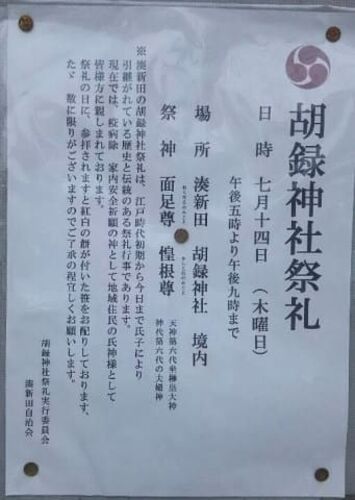 胡録神社祭礼
日時 七月十四日 (木曜日)
午後五時より午後九時まで
場所 湊新田 胡録神社 境内
祭神 面足尊 惶根尊
天神第六代坐榊皇大神
神代第六代の夫婦神
※湊新田の胡録神社祭礼は、江戸時代初期から今日まで氏子により
引継がれている歴史と伝統のある祭礼行事であります。
現在では、疫病除 家内安全祈願の神として地域住民の氏神様として
皆様方に親しまれております。
祭礼の日に、参拝されますと紅白の餅が付いた笹をお配りしております、
たゞ 数に限りがございますのでご了承の程宜しくお願いします。
胡録神社祭礼実行委員会
湊新田自治会